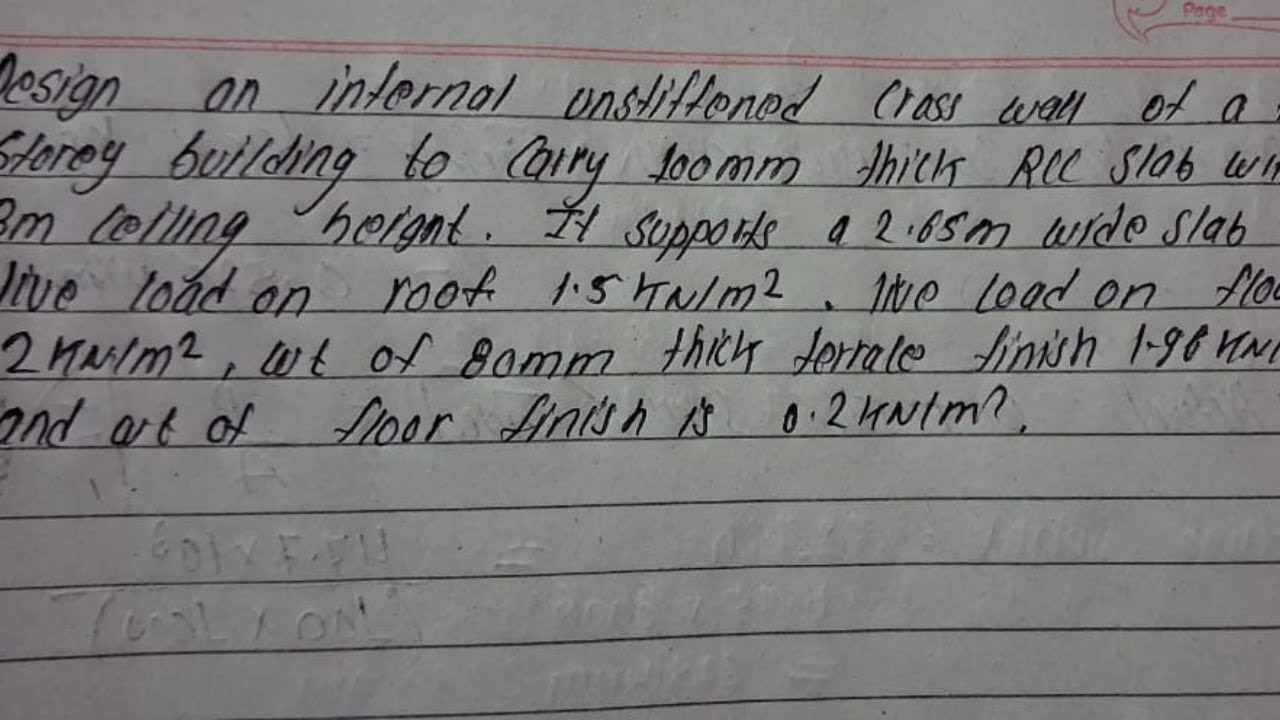 Page
Design an internal unstiffened cross wall of a
storey building to carry 100mm thick RCC slab with
3m ceiling height. It supports a 2.65m wide slab
live load on roof 1.5 KN/m². live load on floo
2 KN/m², wt of 80mm thick terrale finish 1.96 KN/
and wt of floor finish is 0.2 KN/m².